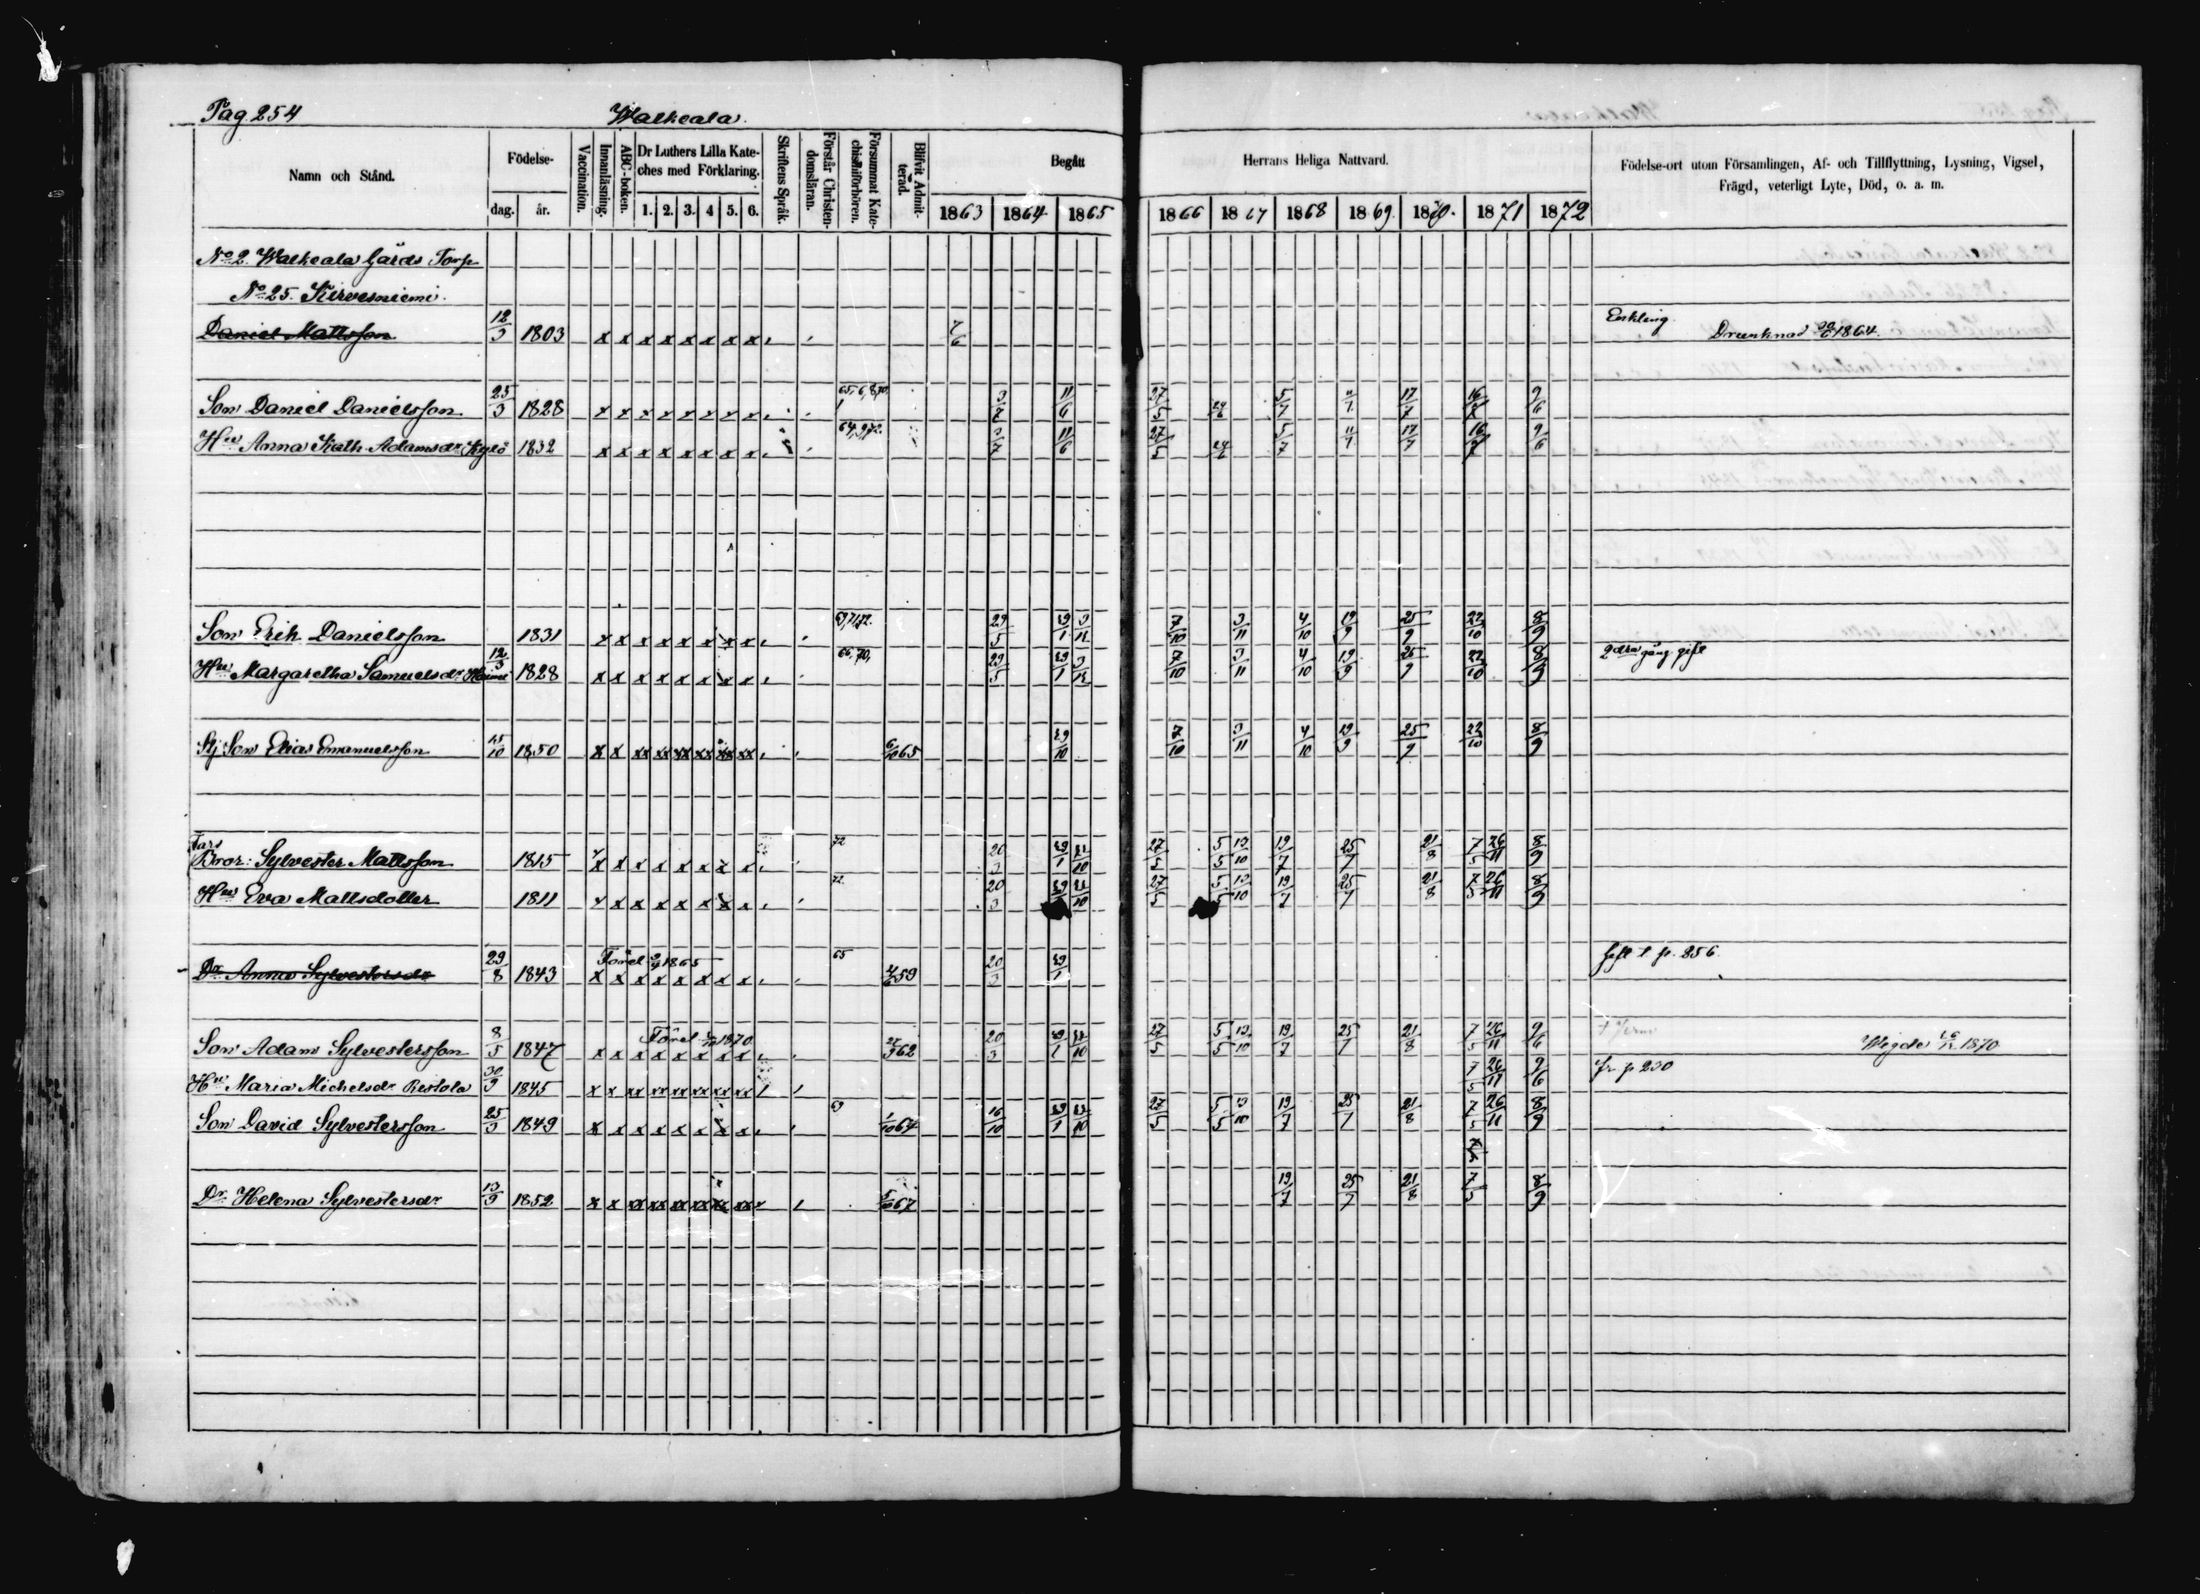 Pag. 254 Walkeala.
Namn och Stånd. Födelse- dag. år. Vaccination. Innanläsning. ABC-boken. Dr Luthers Lilla Kateches med Förklaring. 1. 2. 3. 4 5. 6. Skriftens Språk. Förstår Christendomsläran. Försummat Katechismiförhören. Blifvit Admitterad. Begått Herrans Heliga Nattvard. Födelse-ort utom Församlingen, Af- och Tillflyttning, Lysning, Vigsel, Frägd, veterligt Lyte, Död, o. a. m.
1863 1864 1865 1866 1867 1868 1869 1870. 1871 1872
No 2. Walkeala Gårds Torp
No 25. Kirvesniemi.
Daniel Mattsson 12/3 1803 x x x x x x x x 7/6 Enkling. Drunknad 1864.
Son Daniel Danielsson 25/3 1828 x x x x x x x x 3/7 11/6 27/5 24/6 5/7 11/7 17/7 16/7 9/6
Hu Anna Kath. Adamsdr 1832 x x x x x x x x 64,9,72. 3/7 11/6 27/5 24/6 5/7 11/7 17/7 16/7 9/6
Son Erik Danielsson 1831 x x x x x x x x 29/5 29/1 3/12 7/10 3/11 4/10 19/9 25/9 22/10 8/9
Hu Margaretha Samuelsdr 12/3 1828 x x x x x x x x 66,70, 29/5 29/1 3/12 7/10 3/11 4/10 19/9 25/9 22/10 8/9 2dra gång gift
Stj Son Elias Emanuelsson 15/10 1850 x x xx xx xx xx xx xx 6/10 65 29/10 7/10 3/11 4/10 19/9 25/9 22/10 8/9
Fars
Bror: Sylvester Mattsson 1815 x x x x x x x x 72 20/3 29/1 22/10 27/5 5/5 13/10 19/7 25/7 21/8 7/5 26/11 8/9
Hu Eva Mattsdotter 1811 x x x x x x x x 72 20/3 29/1 22/10 27/5 5/5 13/10 19/7 25/7 21/8 7/5 26/11 8/9
Dr Anna Sylvestersdr 29/8 1843 1865 x x x x x x x x 65 59 20/3 29/1 gift t. p. 256.
Son Adam Sylvestersson 8/5 1847 1870 x x x x x x x x 62 20/3 29/1 22/10 27/5 5/5 13/10 19/7 25/7 21/8 7/5 26/11 9/6 Wigde 1870
Hu Maria Michelsdr Ristola 30/9 1845 x x xx xx xx xx xx xx 7/5 26/11 9/6 fr p 230
Son David Sylvestersson 25/3 1849 x x x x x x x x 69 1/10 64 16/10 29/1 22/10 27/5 5/5 13/10 19/7 25/7 21/8 7/5 26/11 8/9
7/5
Dr Helena Sylvestersdr 13/9 1852 x x xx xx xx xx xx xx 5/10 67 19/7 25/7 21/8 7/5 8/9